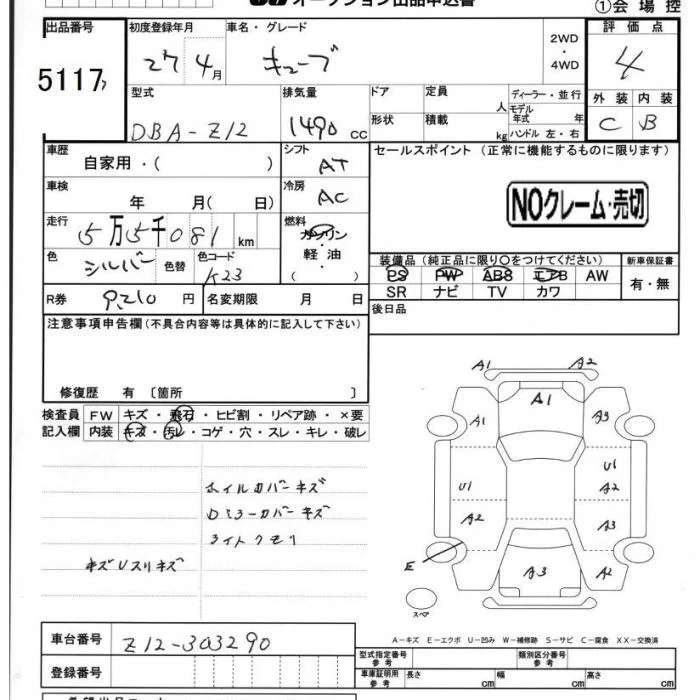 オークション出品申込書
①会場控
出品番号 初度登録年月 車名・グレード 2WD・4WD 評価点
5117 27 4月 キューブ 4
型式 排気量 ドア 定員 人 ディーラー・並行 外装 内装
DBA-Z12 1490cc 形状 積載 kg モデル年式 年 ハンドル 左・右 C B
車歴 自家用・( ) シフト AT セールスポイント (正常に機能するものに限ります)
車検 年 月( 日) 冷房 AC
NOクレーム・売切
走行 5万5千081km 燃料 ガソリン
軽油
・( )
色 シルバー 色替 色コード K23
装備品 (純正品に限り○をつけてください) 新車保証書
PS PW AB8 エアB AW 有・無
SR ナビ TV カワ
R券 9,210円 名変期限 月 日
後日品
注意事項申告欄(不具合内容等は具体的に記入して下さい)
修復歴 有 〔箇所 〕
検査員 FW キズ・飛石・ヒビ割・リペア跡・×要
記入欄 内装 キズ・汚レ・コゲ・穴・スレ・キレ・破レ
A1 A2
A1
A1 A3
U1
U1 A2
A2 A3
E A3 A2
スペア
ホイルカバーキズ
ロミラーカバーキズ
ライトクモリ
キズUスリキズ
A-キズ E-エクボ U-凹み W-補修跡 S-サビ C-腐食 XX-交換済
車台番号 Z12-303290
登録番号
型式指定番号 参考 類別区分番号 参考
車庫証明用 参考 長さ cm 幅 cm 高さ cm